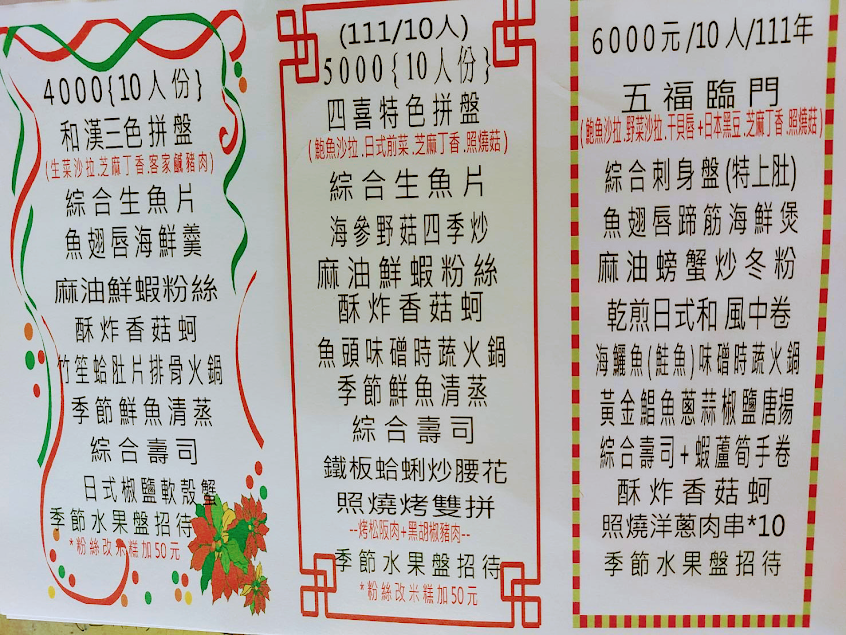 4000{10人份}
和漢三色拼盤
(生菜沙拉.芝麻丁香.客家鹹豬肉)
綜合生魚片
魚翅唇海鮮羹
麻油鮮蝦粉絲
酥炸香菇蚵
竹笙蛤肚片排骨火鍋
季節鮮魚清蒸
綜合壽司
日式椒鹽軟殼蟹
季節水果盤招待
*粉絲改米糕加50元
(111/10人)
5000{10人份}
四喜特色拼盤
(鮑魚沙拉.日式前菜.芝麻丁香.照燒菇)
綜合生魚片
海參野菇四季炒
麻油鮮蝦粉絲
酥炸香菇蚵
魚頭味磳時蔬火鍋
季節鮮魚清蒸
綜合壽司
鐵板蛤蜊炒腰花
照燒烤雙拼
--烤松阪肉+黑胡椒豬肉--
季節水果盤招待
*粉絲改米糕加50元
6000元/10人/111年
五福臨門
(鮑魚沙拉.野菜沙拉.干貝唇+日本黑豆.芝麻丁香.照燒菇)
綜合刺身盤(特上肚)
魚翅唇蹄筋海鮮煲
麻油螃蟹炒冬粉
乾煎日式和風中卷
海鱺魚(鮭魚)味磳時蔬火鍋
黃金鯧魚蔥蒜椒鹽唐揚
綜合壽司+蝦蘆筍手卷
酥炸香菇蚵
照燒洋蔥肉串*10
季節水果盤招待